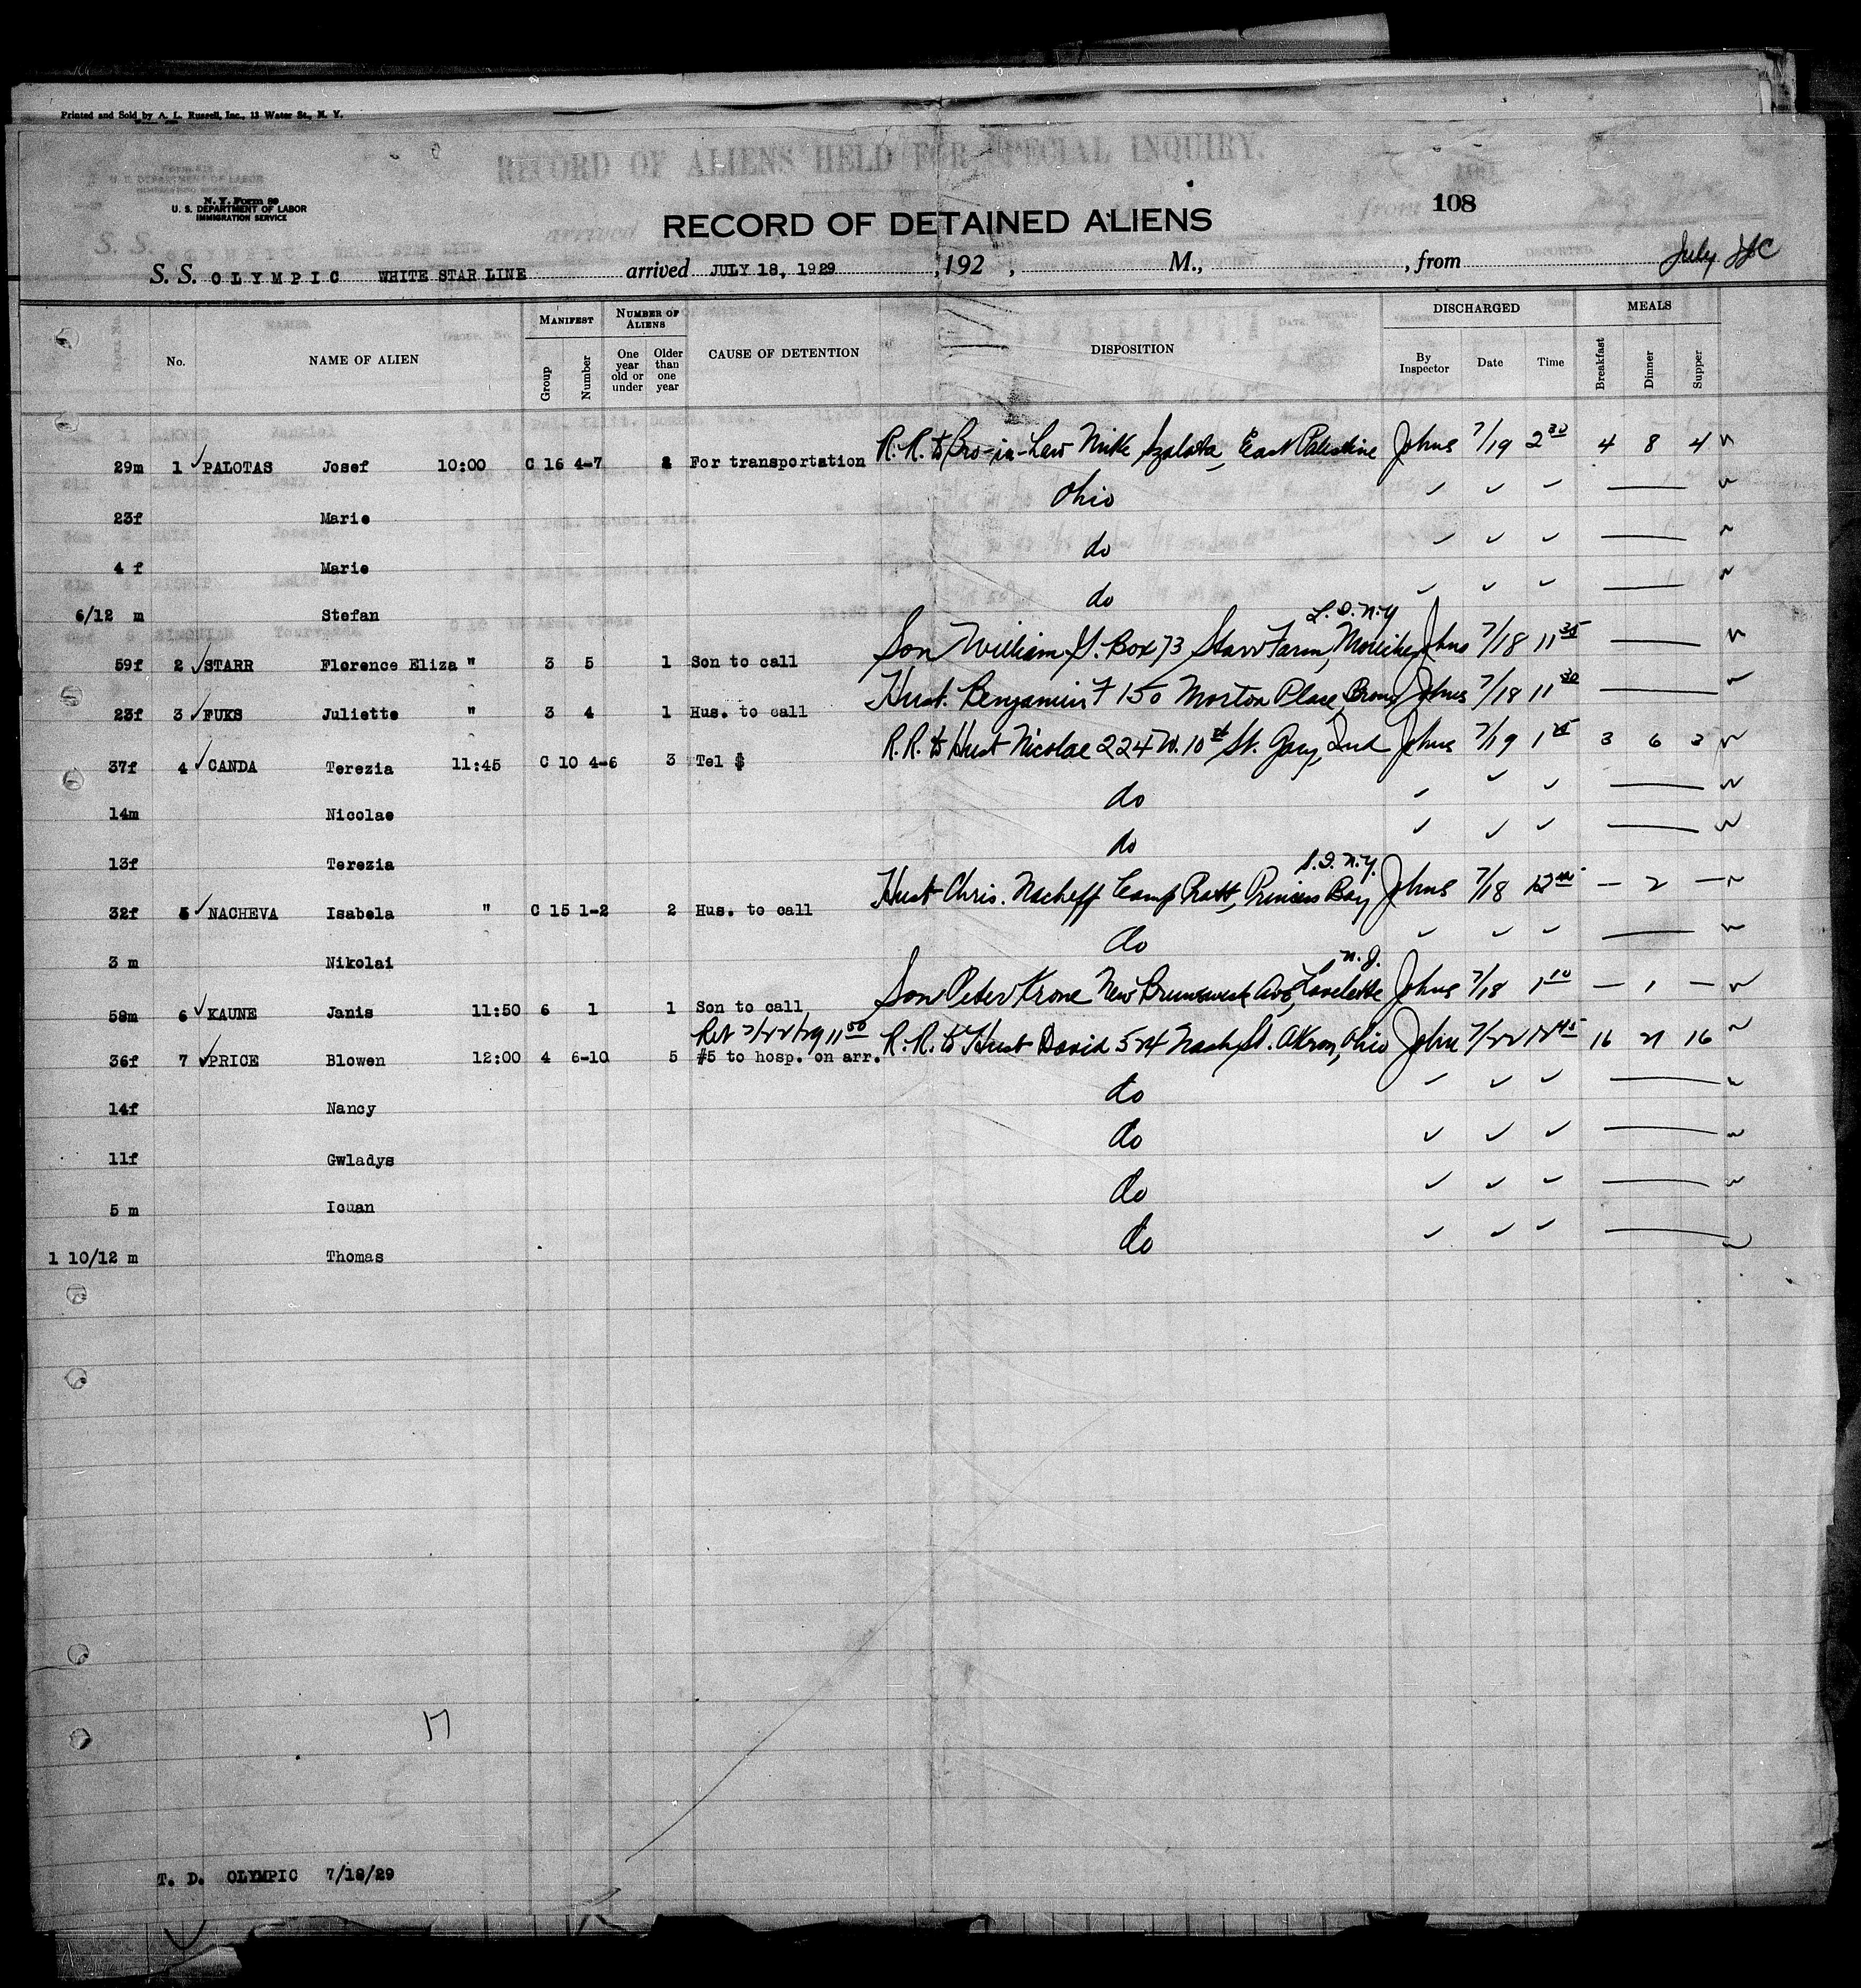 Printed and Sold by A. L. Russell, Inc., 13 Water St., N. Y.
RECORD OF ALIENS HELD FOR SPECIAL INQUIRY.
N. Y. Form 89
U. S. DEPARTMENT OF LABOR
IMMIGRATION SERVICE
108
RECORD OF DETAINED ALIENS
S. S. OLYMPIC WHITE STAR LINE arrived JULY 18, 1929 , 192 , M., , from July
MANIFEST NUMBER OF ALIENS DISCHARGED MEALS
No. NAME OF ALIEN Group Number One year old or under Older than one year CAUSE OF DETENTION DISPOSITION By Inspector Date Time Breakfast Dinner Supper
29m 1 ✓ PALOTAS Josef 10:00 C 16 4-7 For transportation R. R. to Bro-in-Law Mike East Palestine Johns 7/19 2 30 4 8 4
23f Marie Ohio ✓ ✓ ✓
4 f Marie do ✓ ✓ ✓
6/12 m Stefan do ✓ ✓ ✓
L. I. N.Y
59f 2 ✓ STARR Florence Eliza " 3 5 1 Son to call Son William S. Box 73 Starr Farm, Johns 7/18 11 35
23f 3 ✓ FUKS Juliette " 3 4 1 Hus. to call Hust. Benjamin F 150 Morton Place, Bronx Johns 7/18 11 30
37f 4 ✓ CANDA Terezia 11:45 C 10 4-6 3 Tel $ R. R. to Hust Nicolae 224 W. 10th St. Gary, Ind Johns 7/19 1 3 6 3
14m Nicolae do ✓ ✓ ✓
13f Terezia do ✓ ✓ ✓
S. I. N.Y.
32f 5 ✓ NACHEVA Isabela " C 15 1-2 2 Hus. to call Hust Chris. Nacheff Camp Pratt, Princess Bay Johns 7/18 12 — 2 —
3 m Nikolai do ✓ ✓ ✓
N. J.
58m 6 ✓ KAUNE Janis 11:50 6 1 1 Son to call Son Peter Krone New Brunswick Ave, Johns 7/18 1 10 — 1 —
Ret 7/22/29 11 50
36f 7 ✓ PRICE Blowen 12:00 4 6-10 5 #5 to hosp. on arr. R. R. to Hust David 524 Nash St. Akron, Ohio Johns 7/22 12 45 16 21 16
14f Nancy do ✓ ✓ ✓
11f Gwladys do ✓ ✓ ✓
5 m Iouan do ✓ ✓ ✓
1 10/12 m Thomas do ✓ ✓ ✓
17
T. D. OLYMPIC 7/18/29